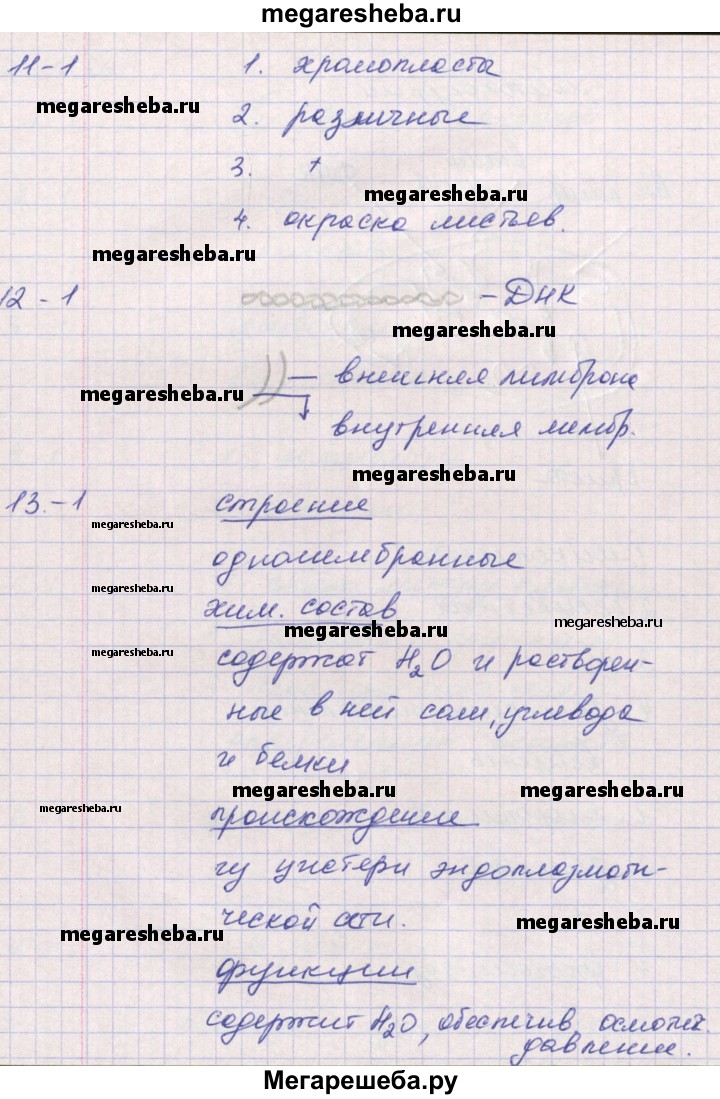 megaresheba.ru
11-1 1. хромопласты
megaresheba.ru
2. различные
3. +
megaresheba.ru
4. окраска листьев.
megaresheba.ru
12-1 - ДНК
megaresheba.ru
— внешняя мембрана
megaresheba.ru
внутренняя мембр.
megaresheba.ru
13.-1 строение
megaresheba.ru
одномембранные
megaresheba.ru
хим. состав
megaresheba.ru
megaresheba.ru
megaresheba.ru
содержат H2O и растворен-
ные в ней соли, углевода
и белки
megaresheba.ru
megaresheba.ru
megaresheba.ru
происхождение
цистерн эндоплазмати-
ческой сети.
megaresheba.ru
megaresheba.ru
функции
содержит H2O, обеспечив. осмотич.
давление.
Мегарешеба.ру